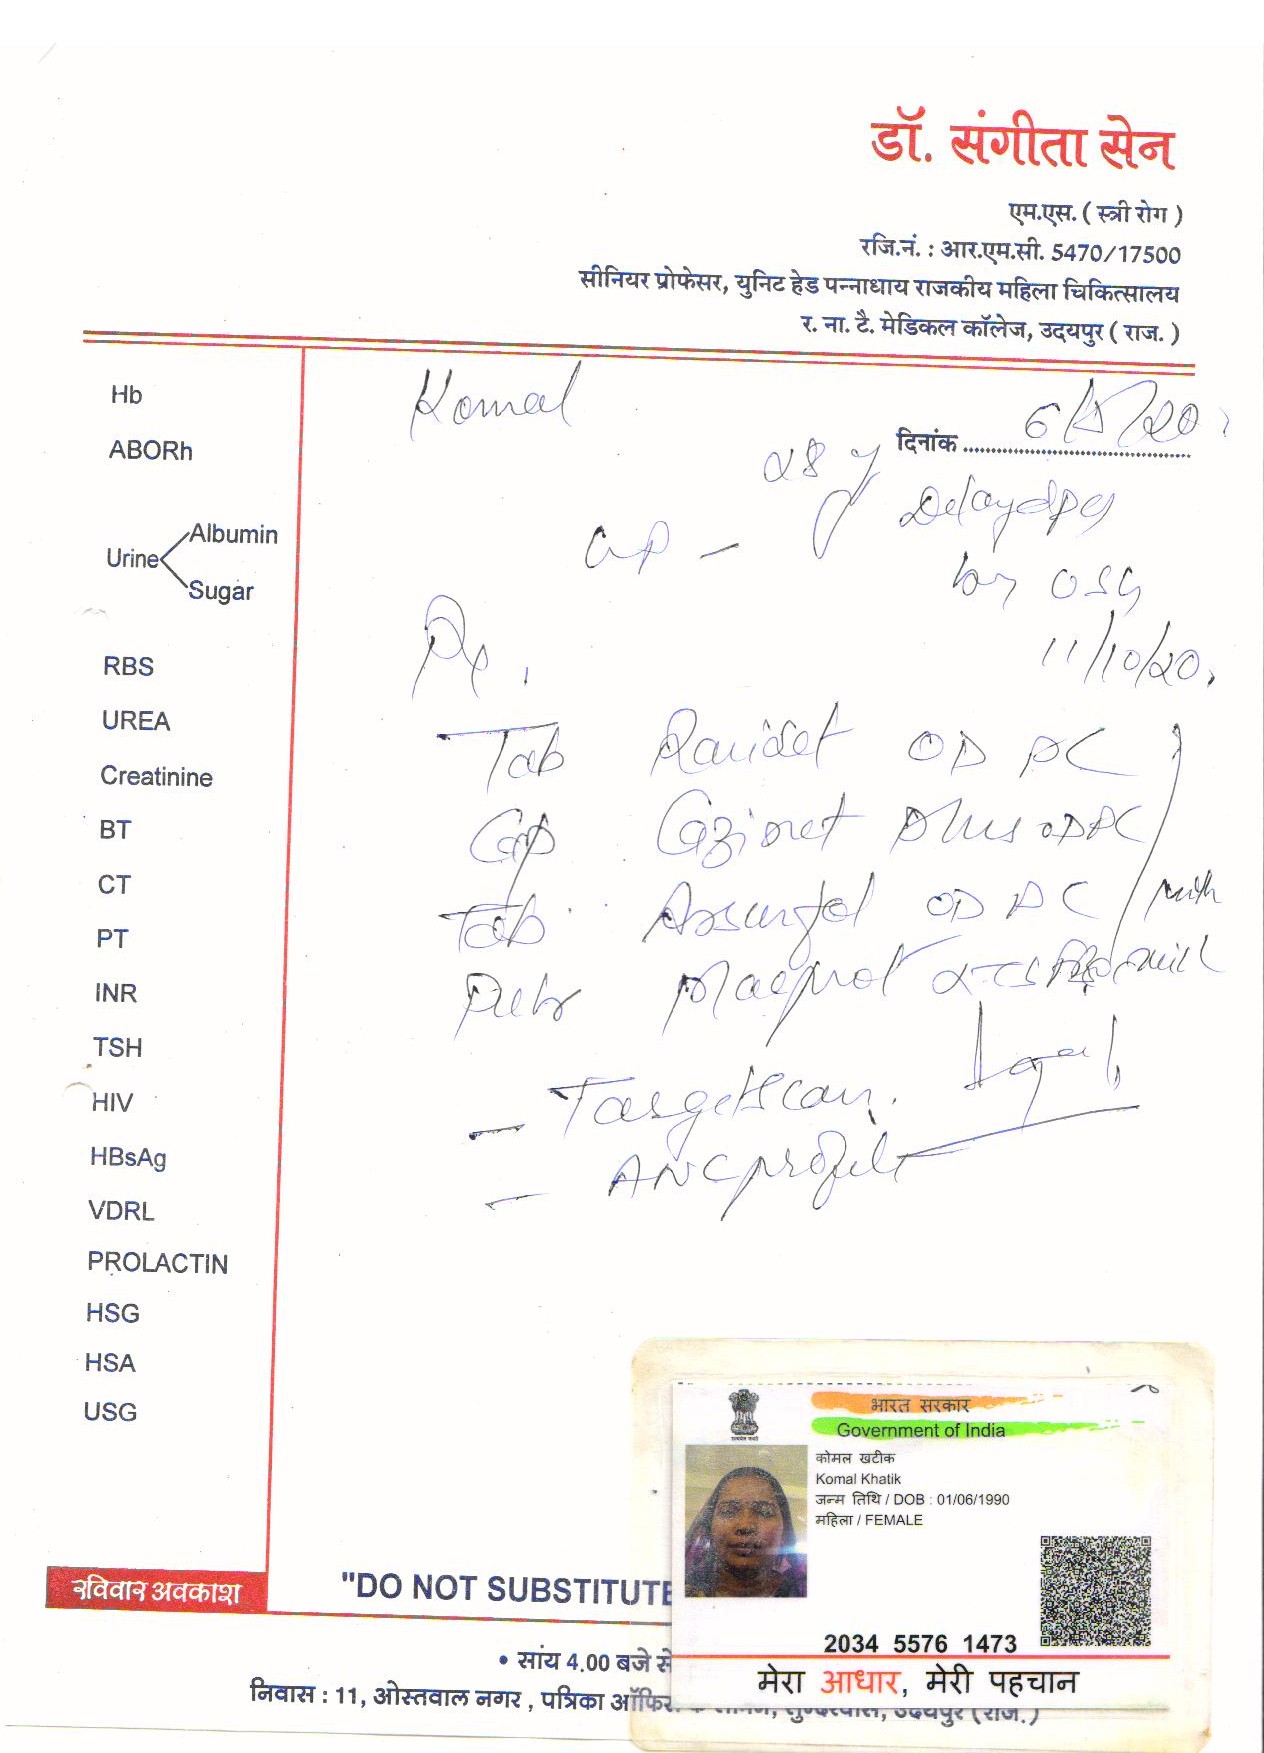 डॉ. संगीता सेन
एम.एस. ( स्त्री रोग )
रजि.नं. : आर.एम.सी. 5470/17500
सीनियर प्रोफेसर, युनिट हेड पन्नाधाय राजकीय महिला चिकित्सालय
र. ना. टै. मेडिकल कॉलेज, उदयपुर ( राज. )
Komal
दिनांक 6/5/20
28 y
by USG
11/10/20
Tab OD PC
Cap Plus OD PC
Tab OD PC with
milk
- Target scan.
- ANC profile
Hb
ABORh
Urine
Albumin
Sugar
RBS
UREA
Creatinine
BT
CT
PT
INR
TSH
HIV
HBsAg
VDRL
PROLACTIN
HSG
HSA
USG
रविवार अवकाश
"DO NOT SUBSTITUTE
• सांय 4.00 बजे से
निवास : 11, ओस्तवाल नगर , पत्रिका ऑफिस
उदयपुर (राज.)
भारत सरकार
Government of India
कोमल खटीक
Komal Khatik
जन्म तिथि / DOB : 01/06/1990
महिला / FEMALE
2034 5576 1473
मेरा आधार, मेरी पहचान